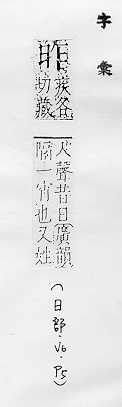 字彙
昨
疾各
切藏
入聲昔日廣韻
隔一宵也又姓
(日部.V6.P5)